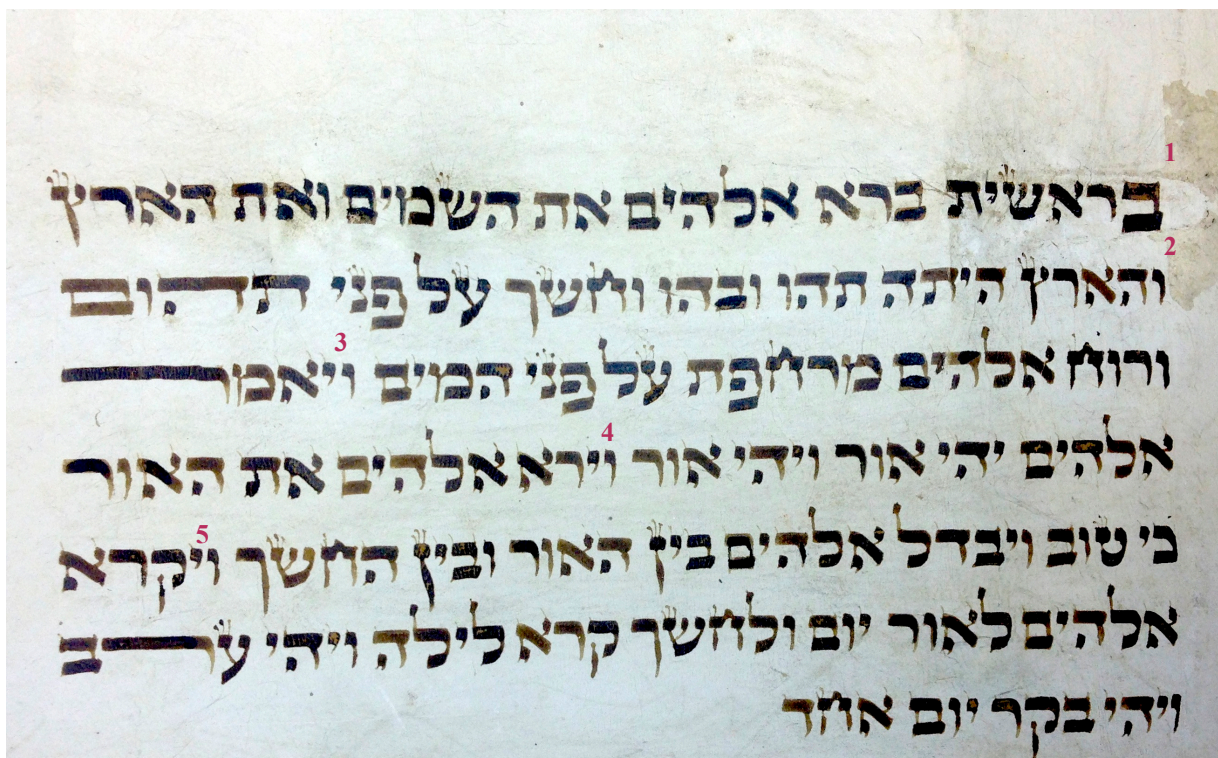 1 בראשית ברא אלהים את השמים ואת הארץ
2 והארץ היתה תהו ובהו וחשך על פני תהום
ורוח אלהים מרחפת על פני המים 3 ויאמר
אלהים יהי אור ויהי אור 4 וירא אלהים את האור
כי טוב ויבדל אלהים בין האור ובין החשך 5 ויקרא
אלהים לאור יום ולחשך קרא לילה ויהי ערב
ויהי בקר יום אחד